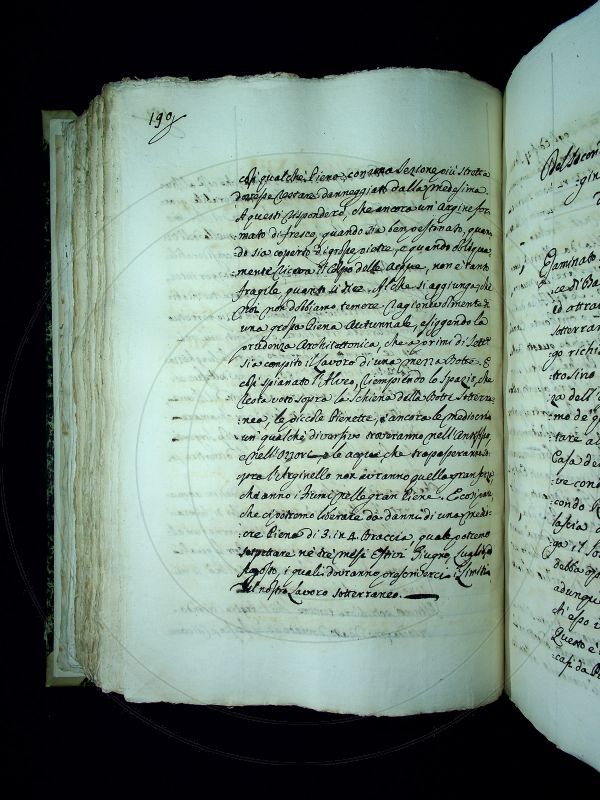 190
così qualche Piena, con una Sezione più stretta
dovesse restare danneggiato dalla medesima.
A questi risponderò, che ancora un'Argine for=
mato di fresco, quando sia ben pestonato, quan=
do sia coperto di grosse pietre, e quando obliqua=
mente riceva il colpo delle Acque, non è tanto
fragile, quanto si dice. Al che si aggiunga, che
noi non dobbiamo temere ragionevolmente di
una grossa Piena Autunnale, esiggendo la
prudenza Architettonica, che a primi di Sett.
sia compito il Lavoro di una mezza Botte. E
così spianato l'Alveo, riempiendo lo spazio, che
resta voto sopra la Schiena della Botte Sotter=
nea, le piccole Pienette, e ancora le mediocri
un qualche diversivo troveranno nell'
e nell' e le acque che trapasseranno so=
pra l'Arginello non avranno quella gran
che anno i Fiumi nelle gran Piene. Ecco
che ci potremo liberare da danni di una medi=
ocre Piena di 3. in 4. Braccia, quale potremo
sospettare ne tre mesi Estivi Giugno, Luglio, ed
Agosto, i quali dovranno prescriverci i Limiti
del nostro Lavoro sotterraneo.
Esaminato
ce di
ed
sotterran
go richi
trosino
za dell'
mo de
tare
Casa de
ve con
condo
lascia
ga il
debba
adunqu
Ch'esso
Questo è
casi da